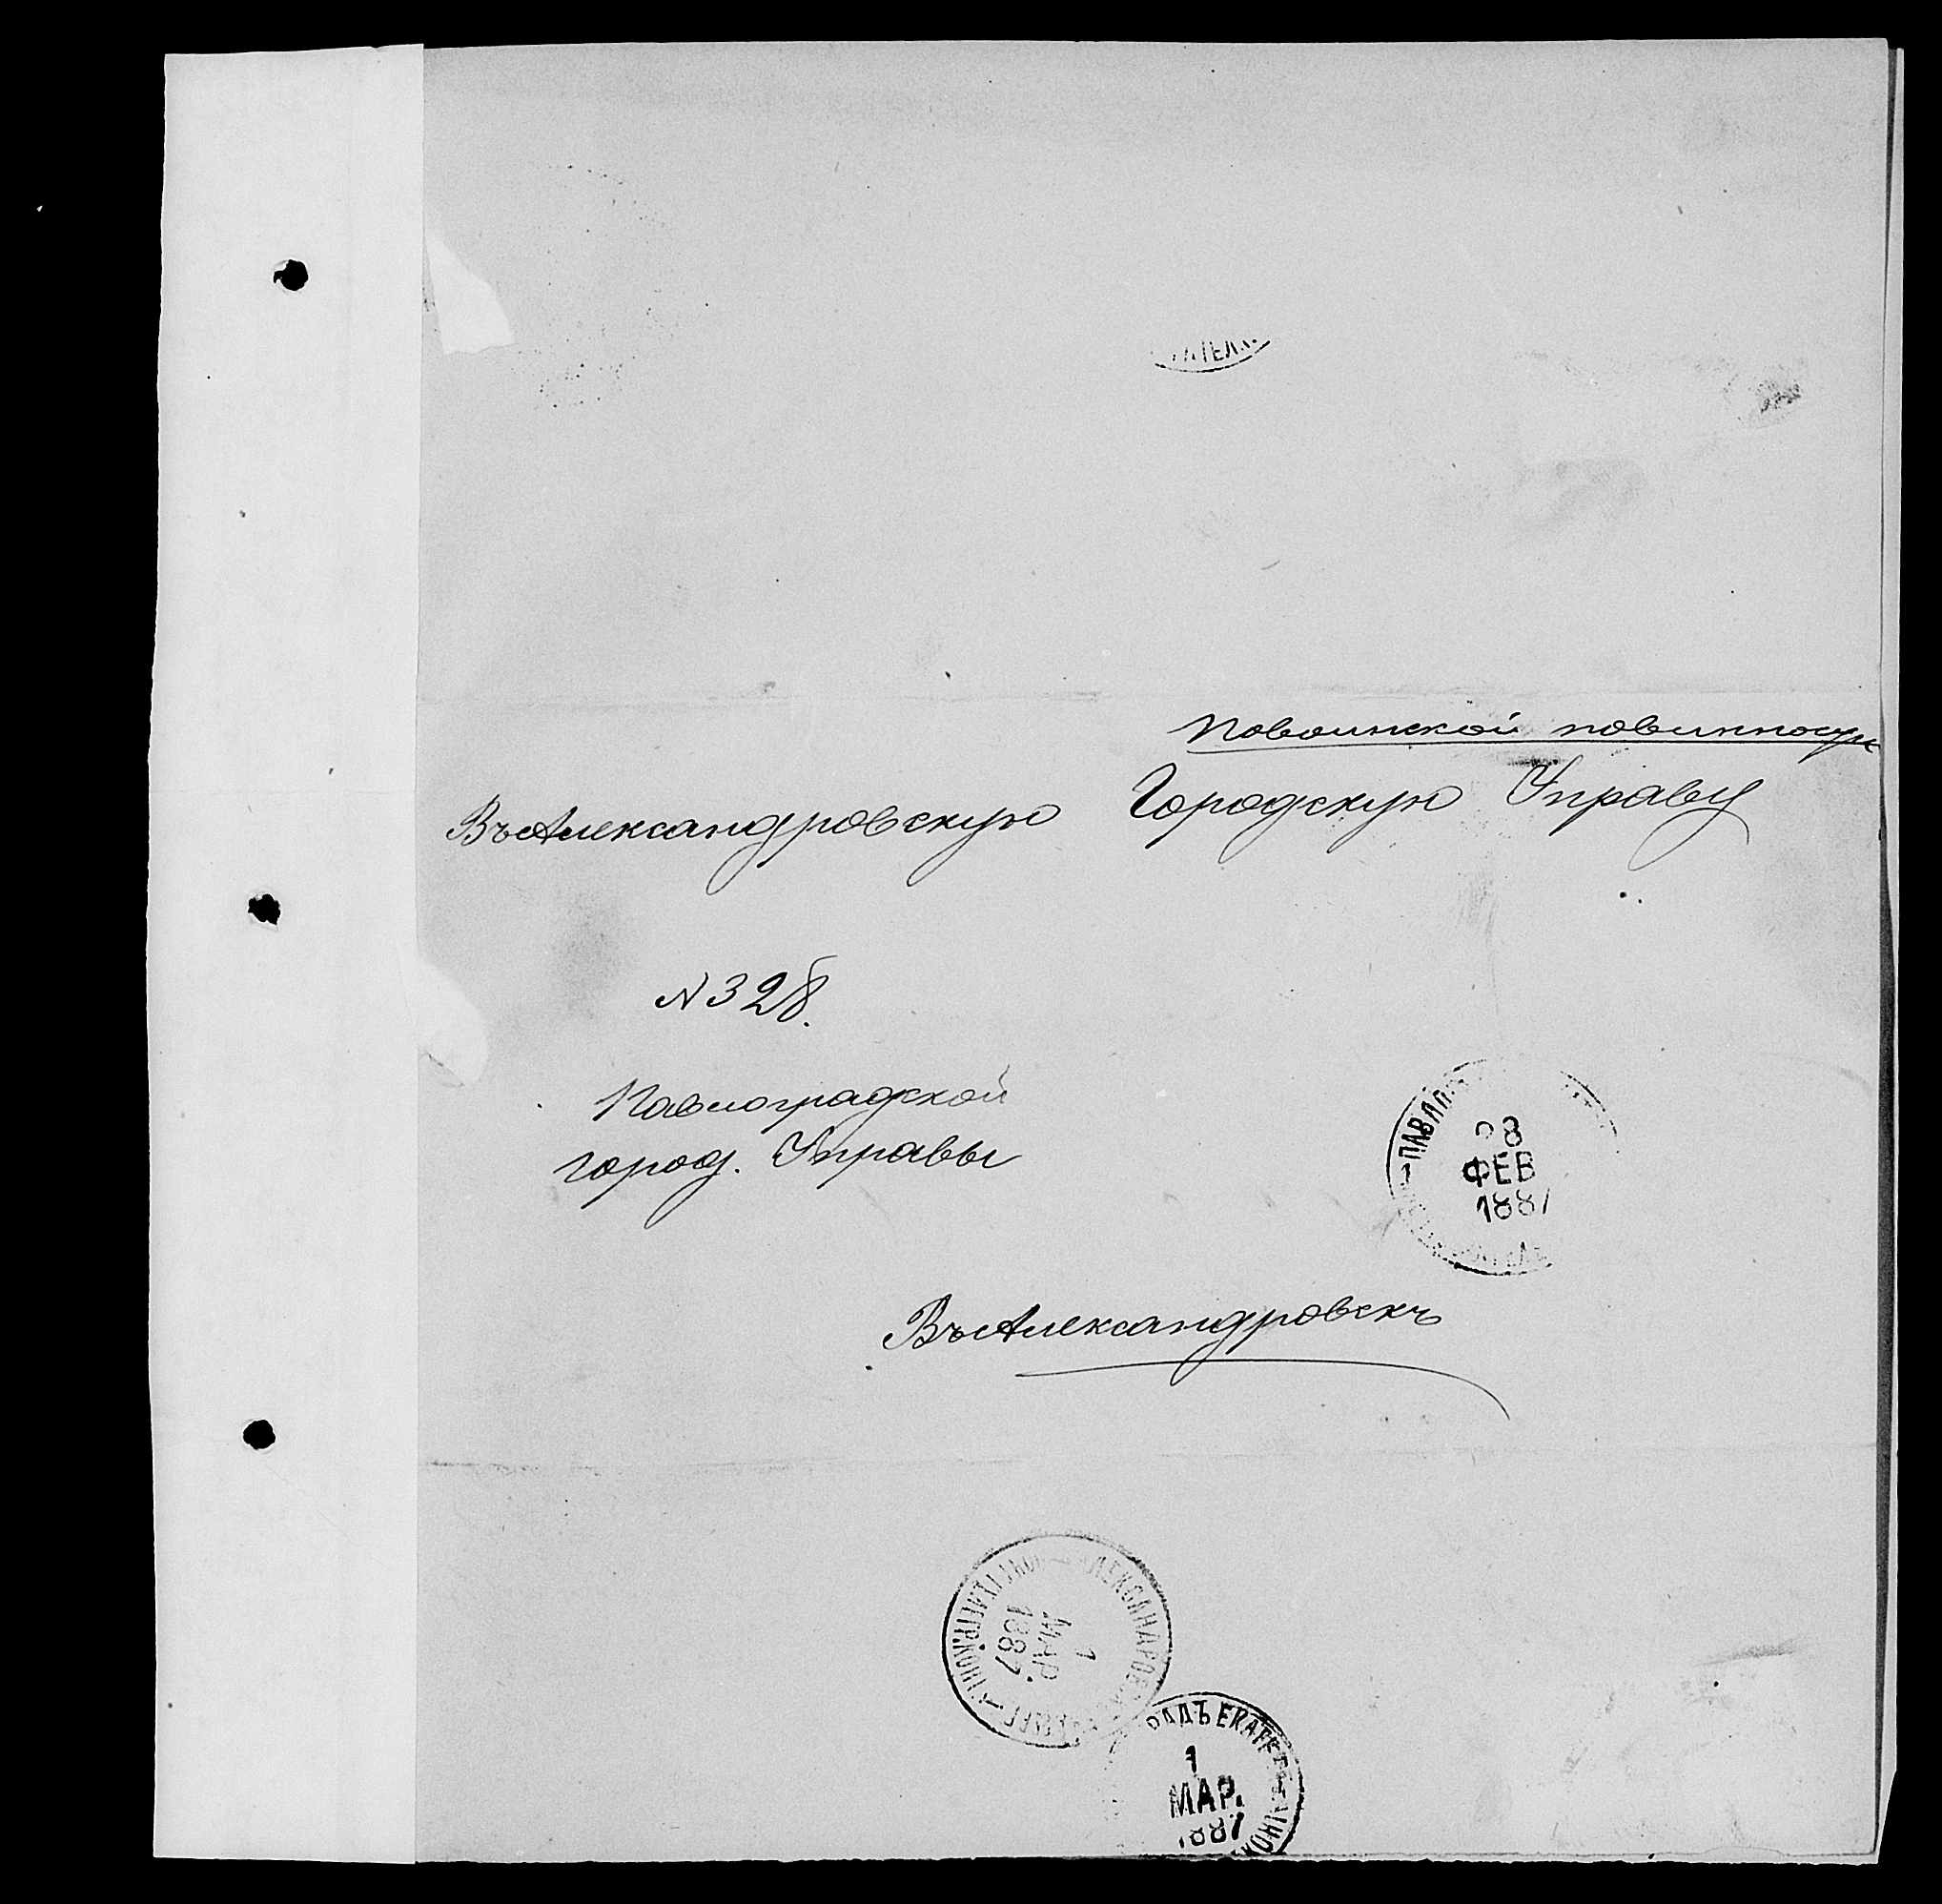 По воинской повинности
Въ Александровскую Городскую Управу
№ 328.
Павлоградской
город. Управы
28
ФЕВ
1887
Въ Александровскъ
1
МАР.
1887
РАДЪ ЕКАТЕ
1
МАР.
1887